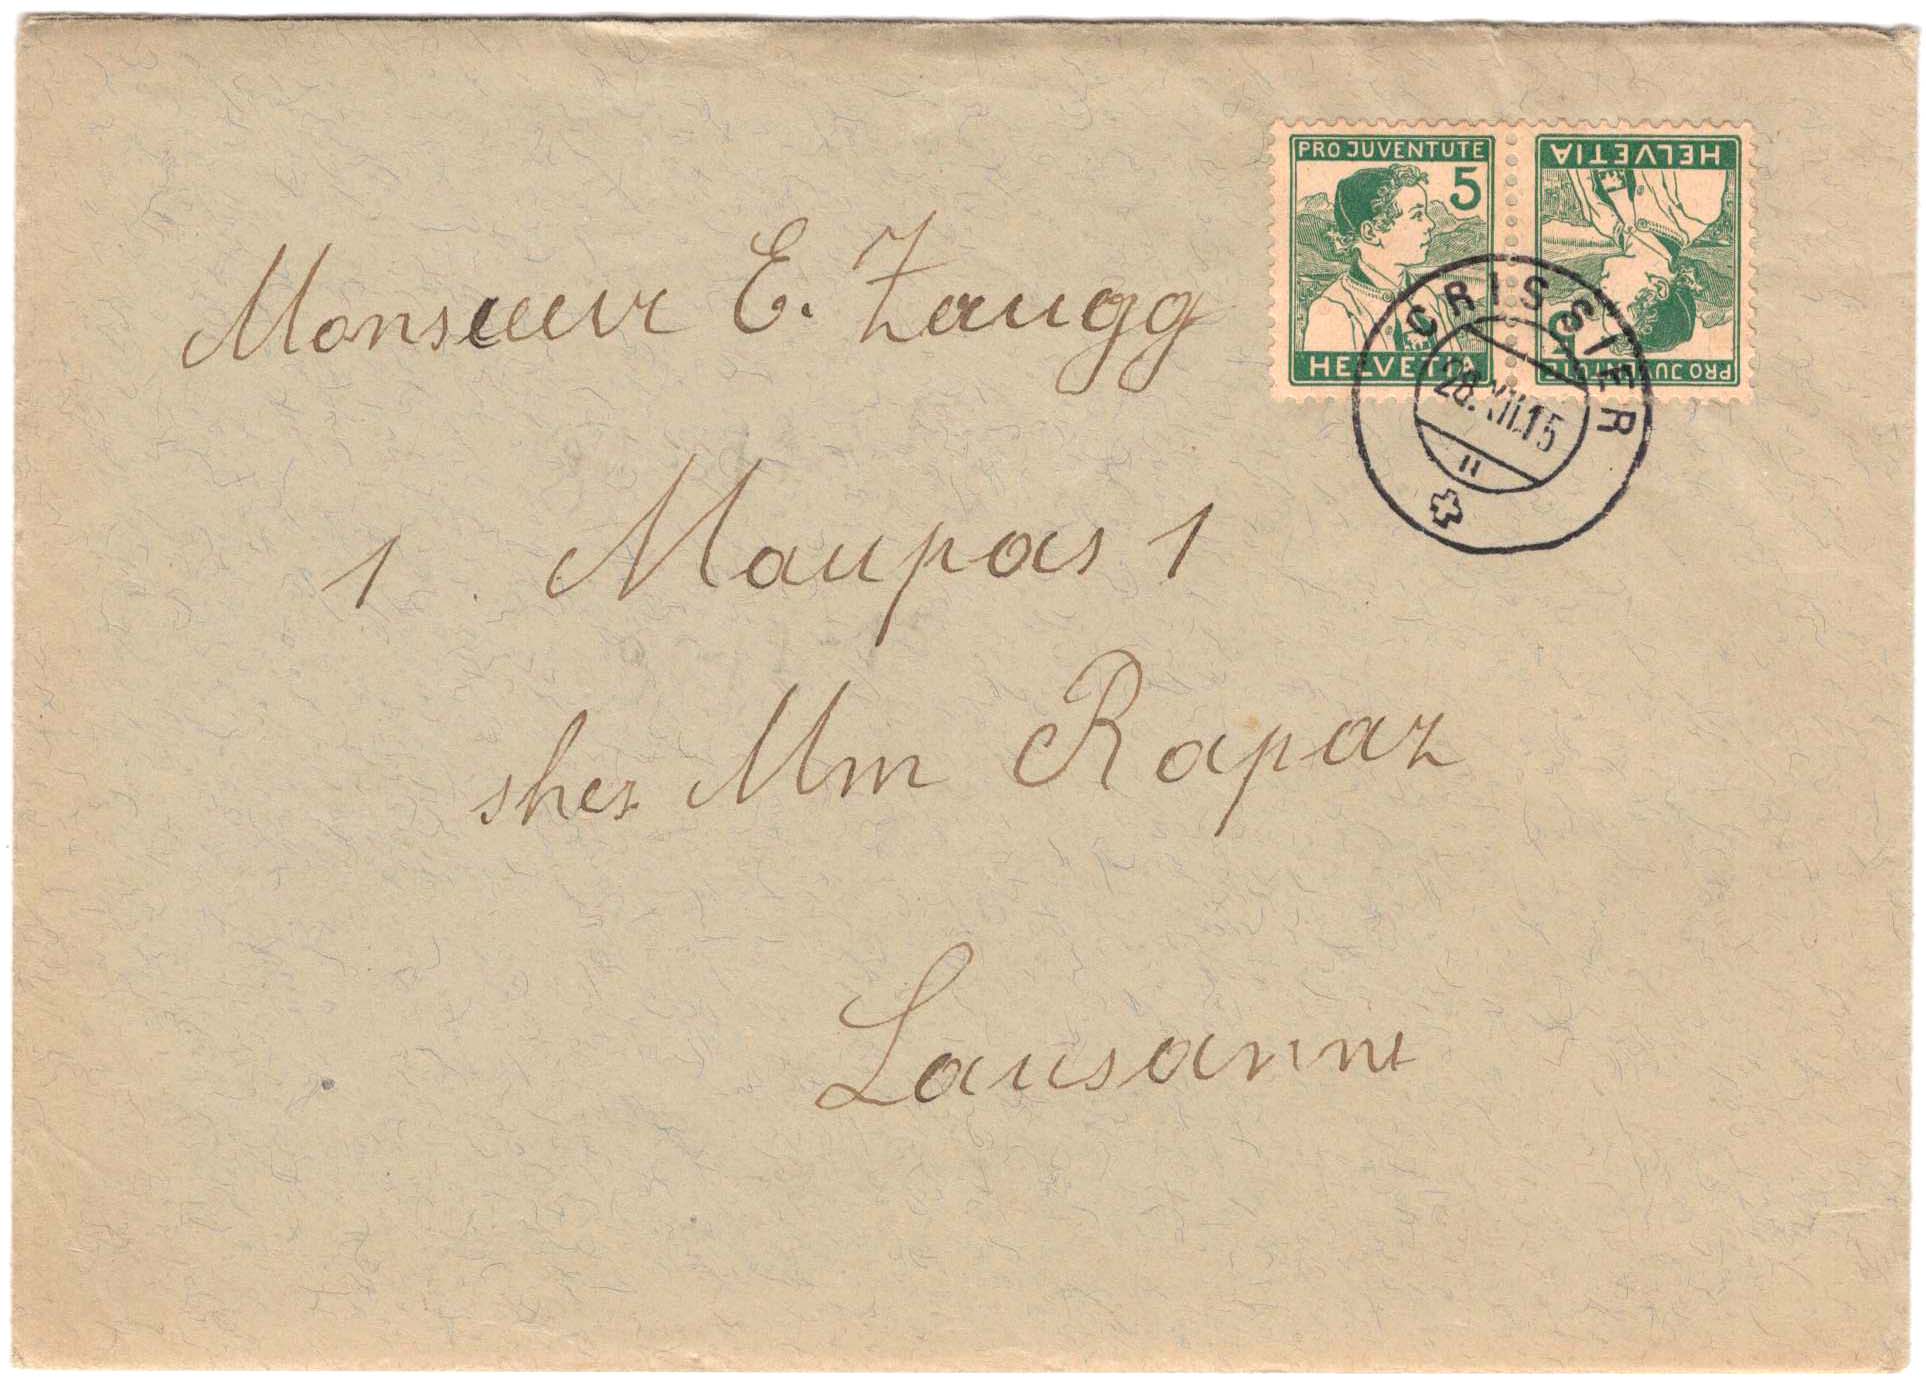 PRO JUVENTUTE
5
HELVETIA
HELVETIA
5
PRO JUVENTUTE
CRISSIER
28.XII.15
Monsieur E. Zaugg
1 Maupas 1
shez Mm Rapaz
Lausanne